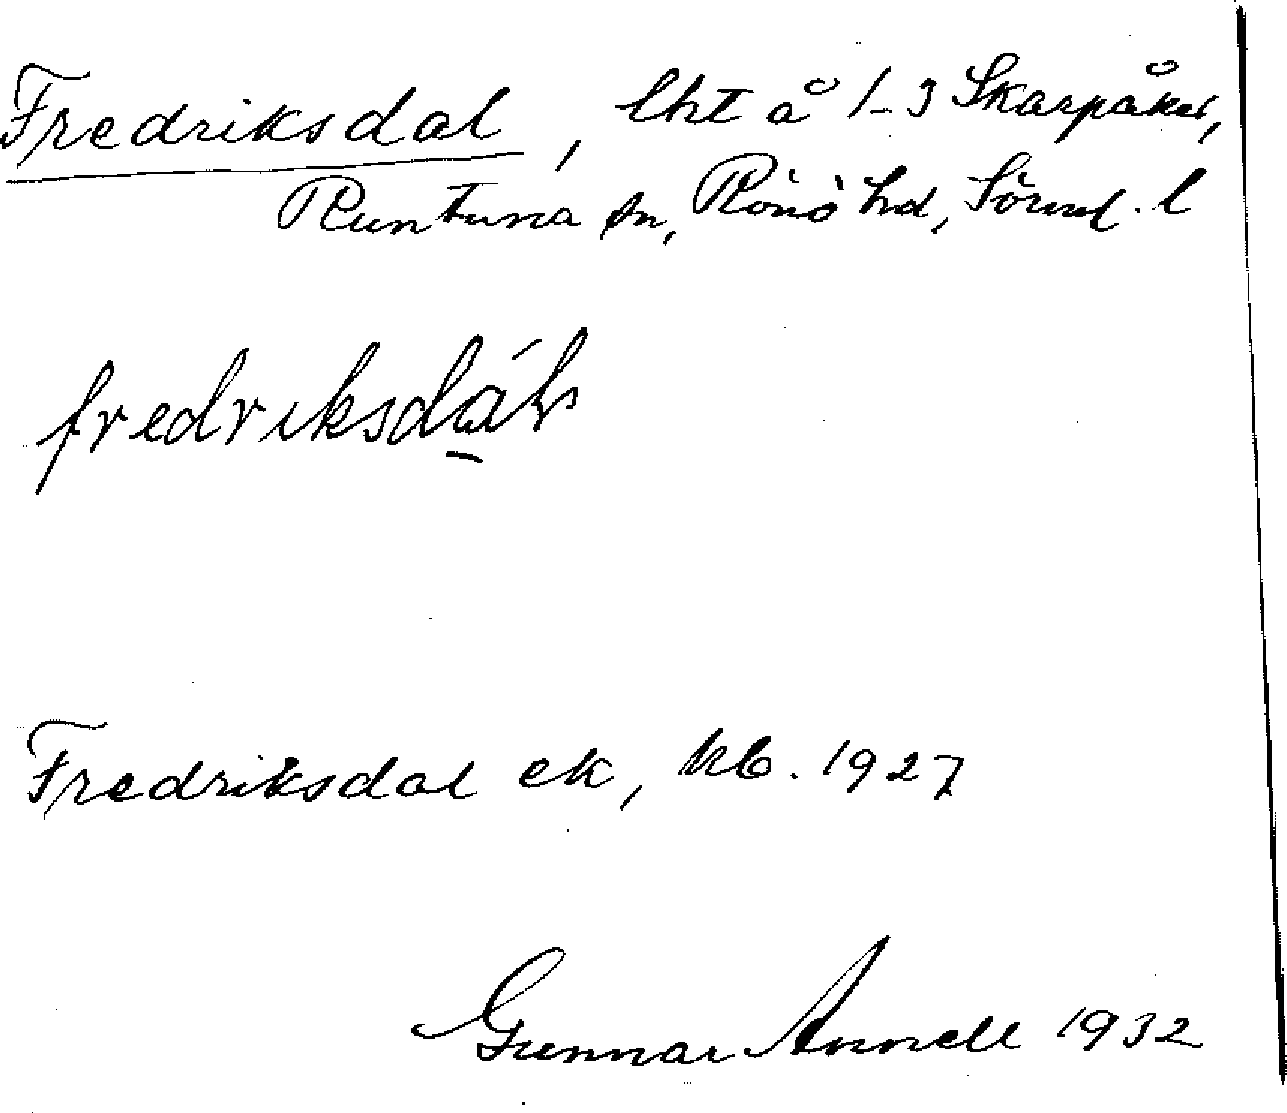 Fredriksdal, lht å 1-3 Skarpåker,
Runtuna sn, Rönö hd, Sörml. l
fredriksdál
Fredriksdal ek, kb. 1927
Gunnar Annell 1932